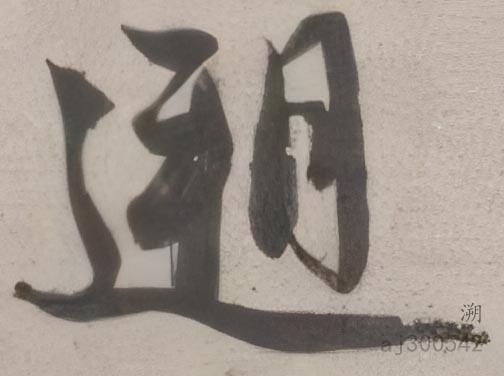 遡
溯
aj300542